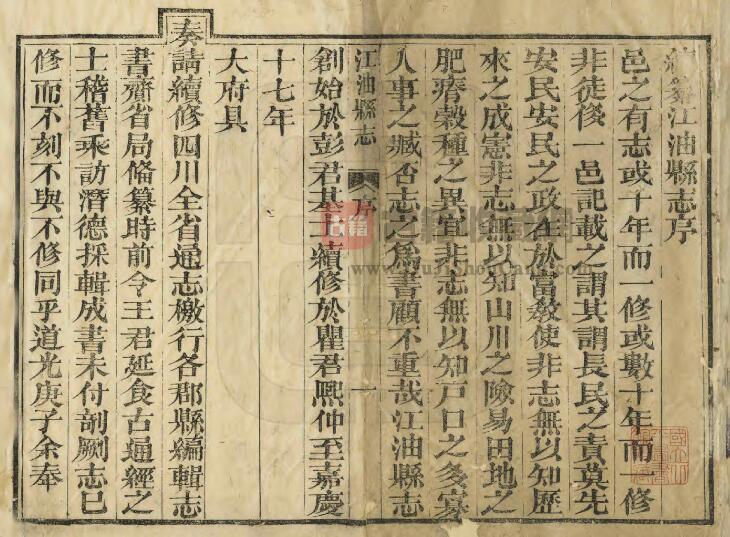 續纂江油縣志序
邑之有志或十年而一修或數十年而一修
非徒俟一邑記載之謂其謂長民之責莫先
安民安民之政在於富敎使非志無以知歷
來之成憲非志無以知山川之險易田地之
肥瘠穀種之異宜非志無以知戸口之多寡
人事之臧否志之爲書顧不重哉江油縣志
江油縣志 序 一
創始於彭君基士續修於瞿君熙仲至嘉慶
十七年
大府具
奏請續修四川全省通志檄行各郡縣編輯志
書齎省局俻纂時前令王君延食古通經之
士稽舊乘訪濟德採輯成書未付剞劂志已
修而不刻不與不修同乎道光庚子余奉